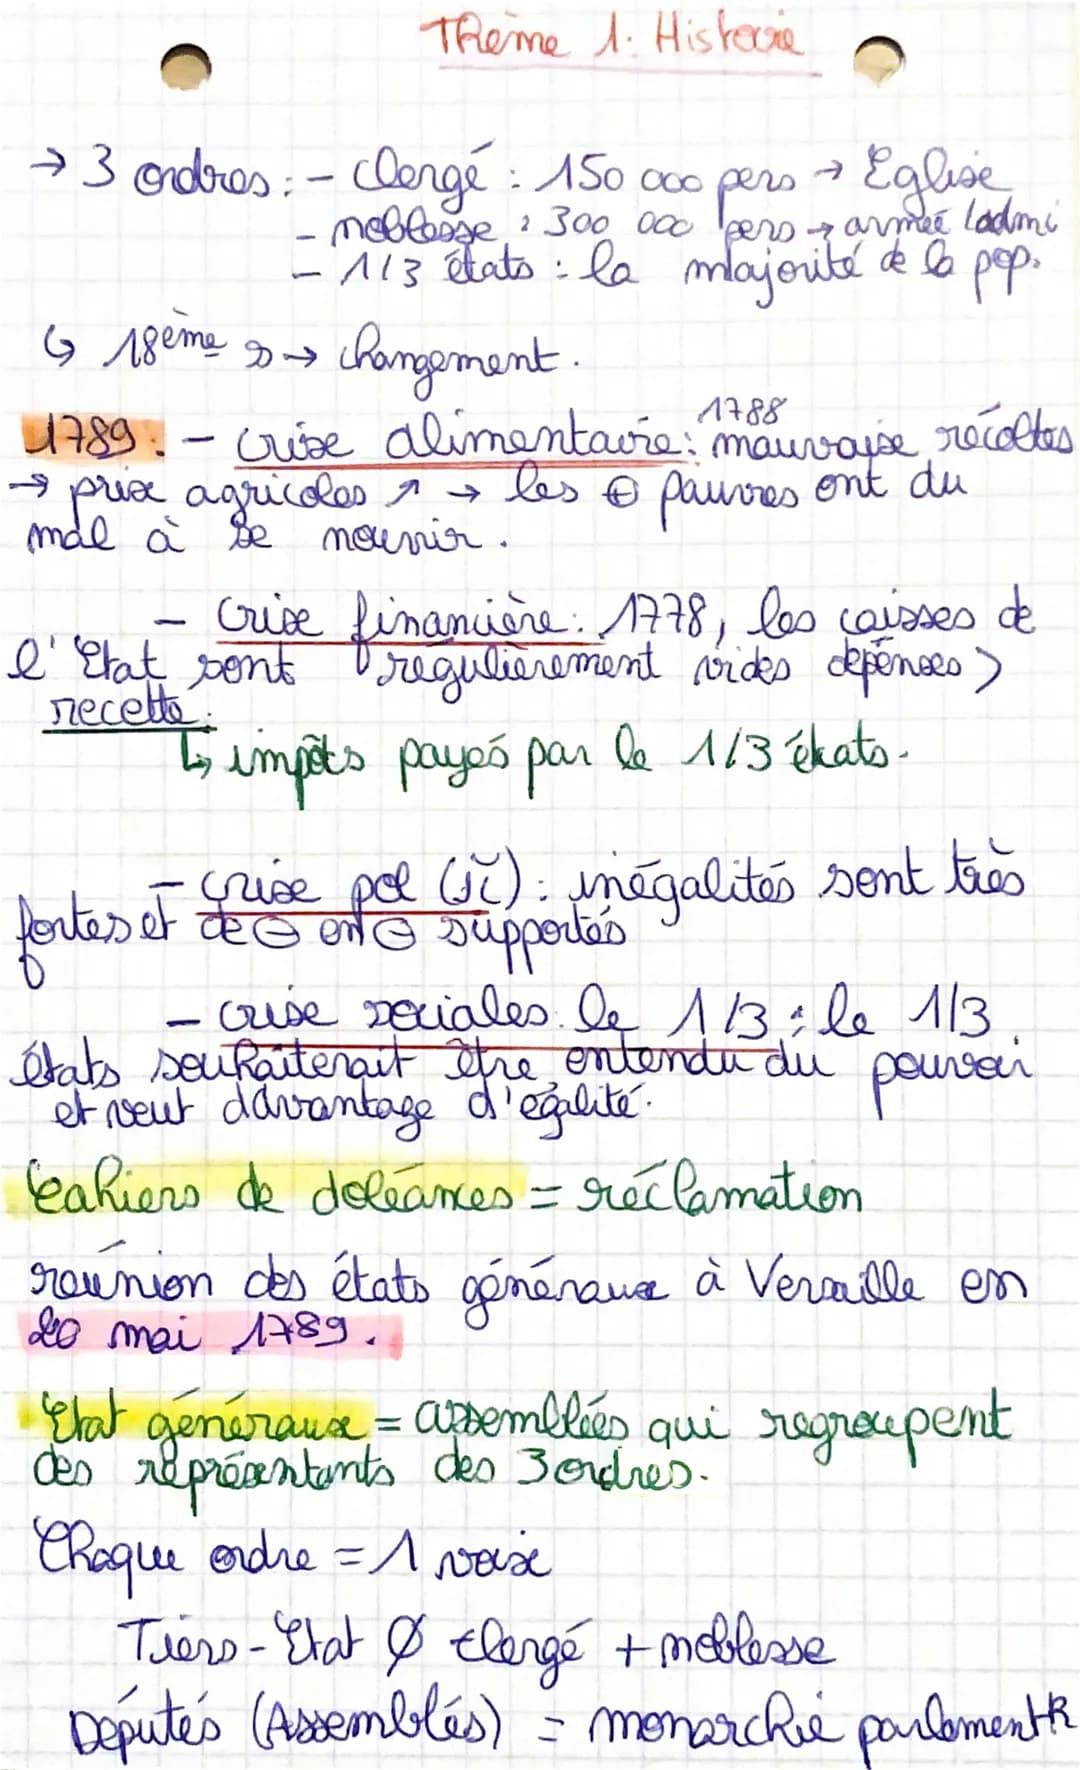 Thème 1: Histoire
→ 3 ordres: - Clergé : 150 000 pers → Eglise
- noblesse : 300 000 pers → armée /admi
- 1/3 états : la majorité de la pop.
↳ 18ème s → changement.
1788
1789. - crise alimentaire: mauvaise récoltes
→ prix agricoles ↗ → les ⊕ pauvres ont du
mal à se nourrir.
- Crise financière: 1778, les caisses de
l'Etat sont régulièrement vides dépenses >
recette.
↳ impôts payés par le 1/3 états.
- crise pol : inégalités sont très
fortes et de ⊖ en ⊖ supportés
- crise sociales. le 1/3 : le 1/3
états souhaiterait être entendu du pouvoir
et veut davantage d'égalité.
Cahiers de doléances = réclamation
réunion des états généraux à Versaille en
20 mai 1789.
Etat généraux = assemblées qui regroupent
des représentants des 3 ordres.
Chaque ordre = 1 voix
Tiers-Etat Ø clergé + noblesse
Députés (Assemblés) = monarchie